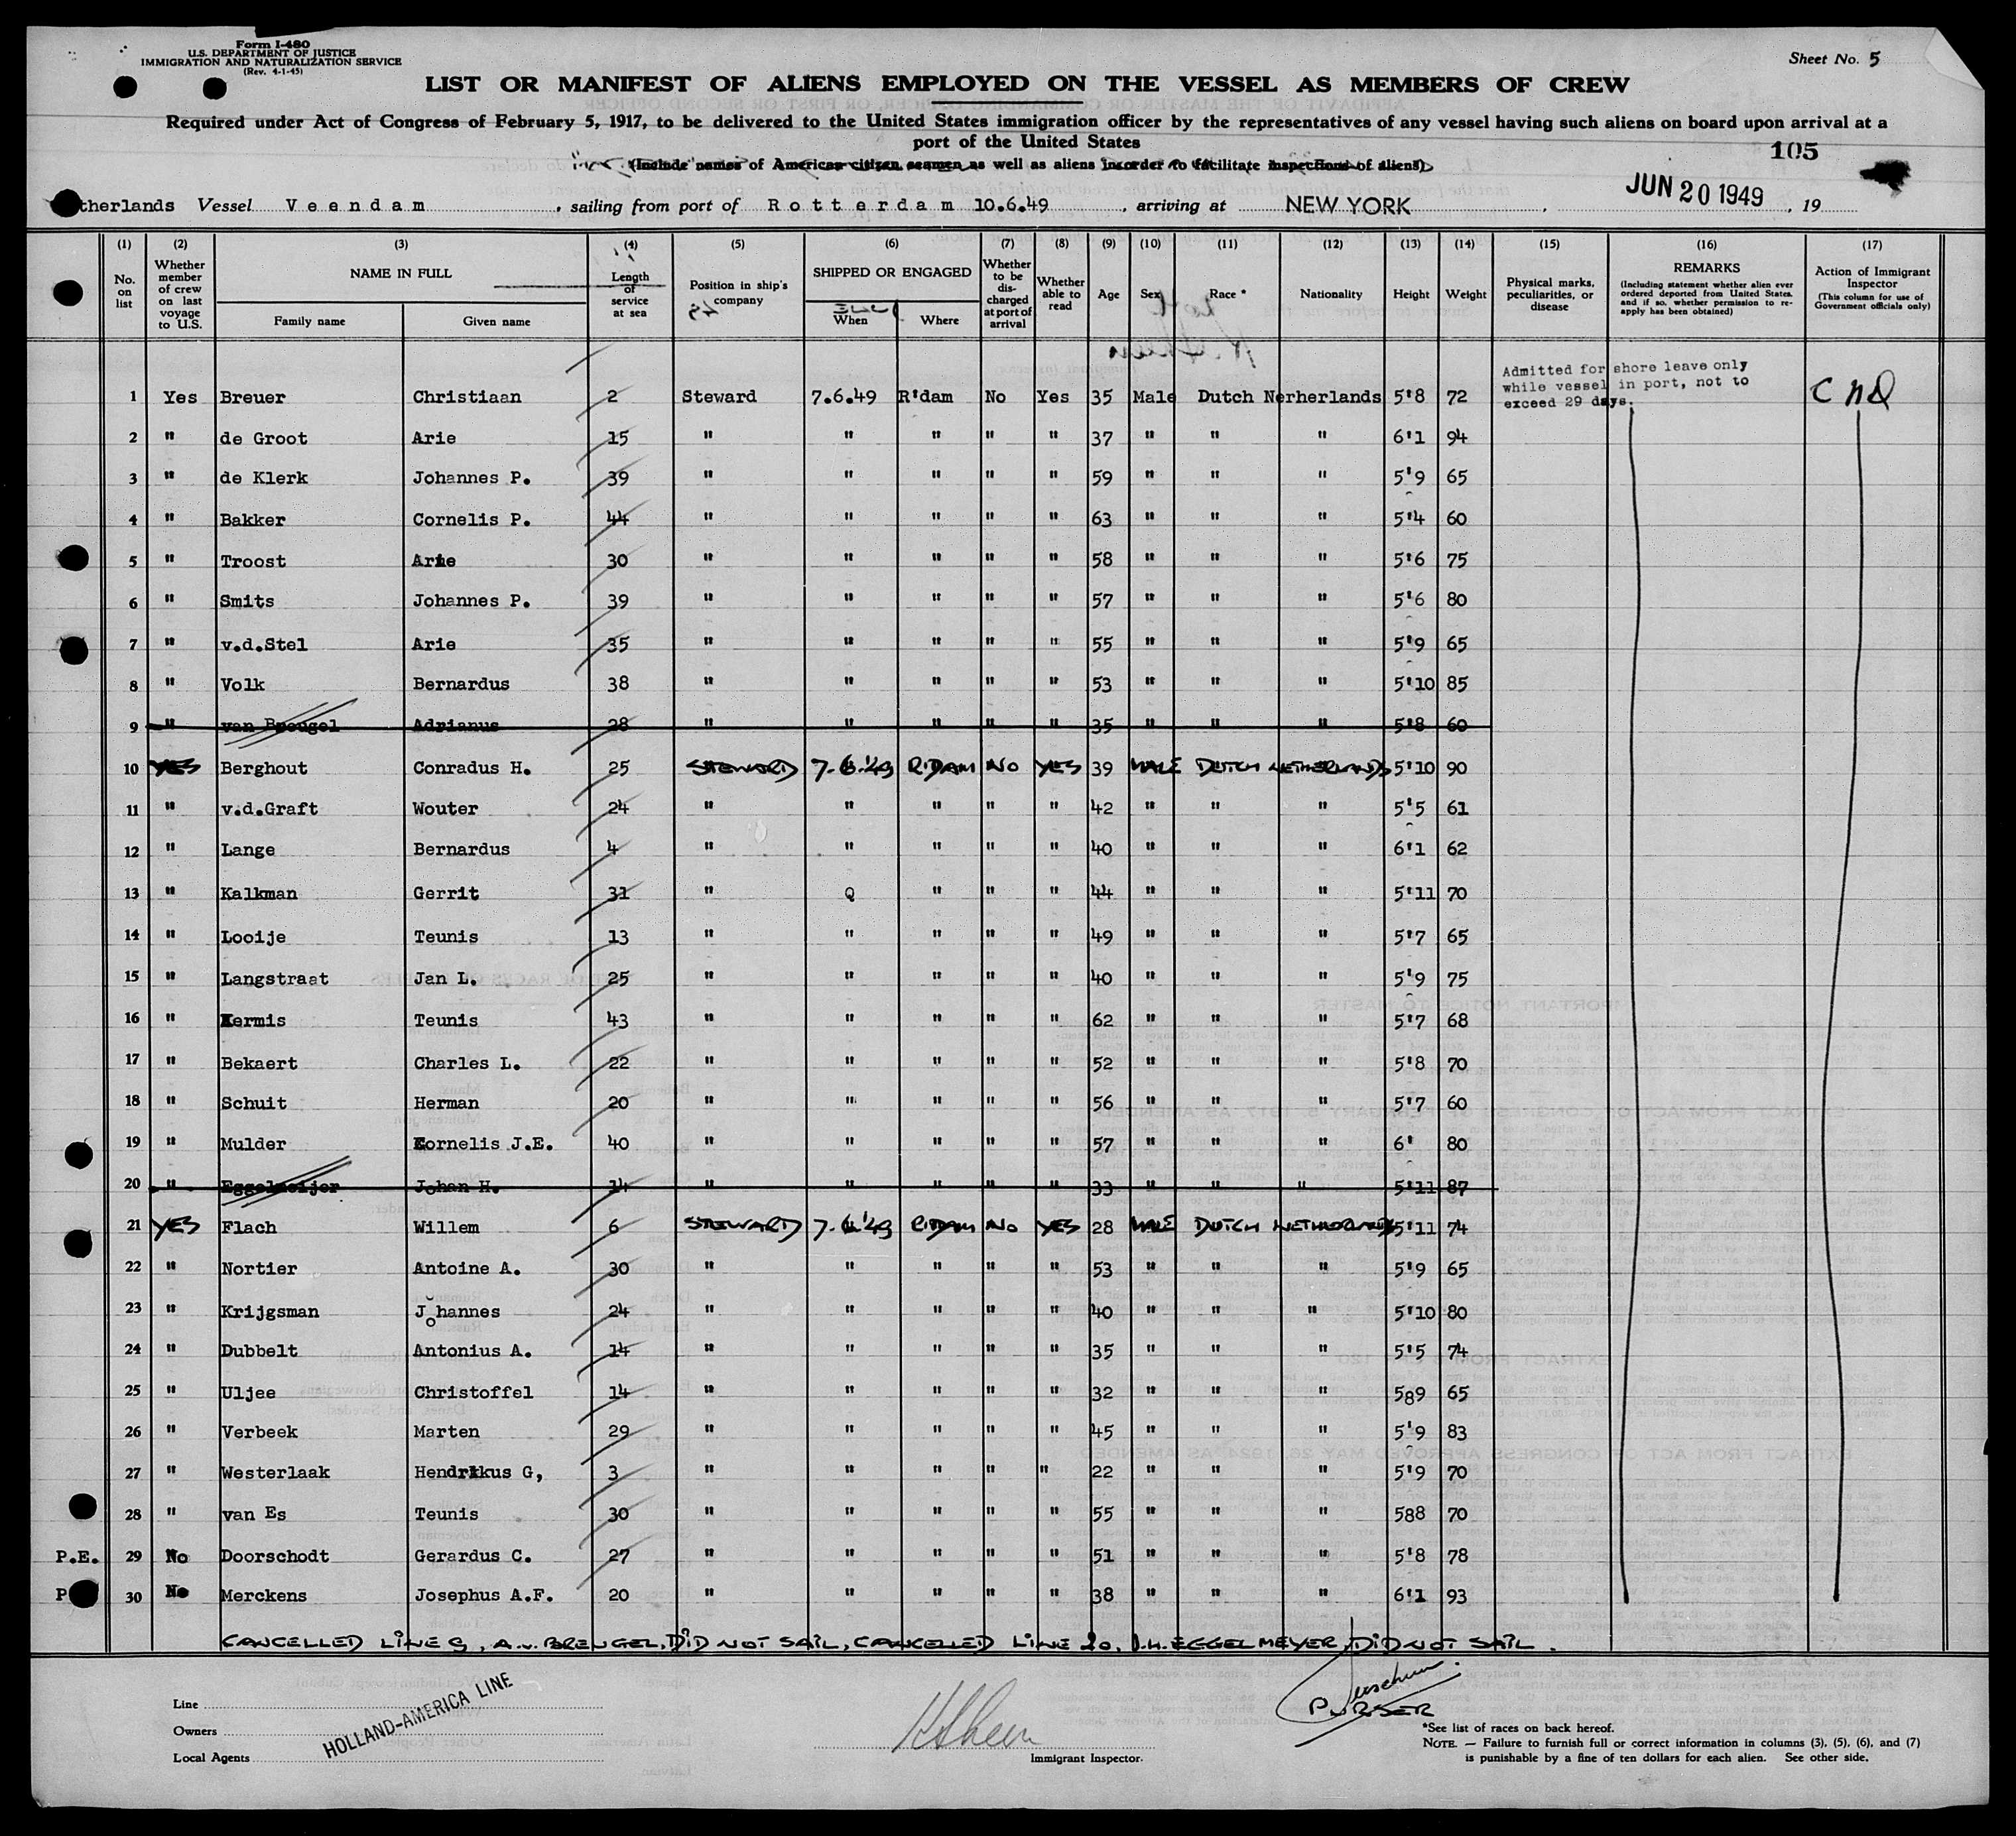 Form I-480
U.S. DEPARTMENT OF JUSTICE
IMMIGRATION AND NATURALIZATION SERVICE
(Rev. 4-1-45)
Sheet No. 5
LIST OR MANIFEST OF ALIENS EMPLOYED ON THE VESSEL AS MEMBERS OF CREW
Required under Act of Congress of February 5, 1917, to be delivered to the United States immigration officer by the representatives of any vessel having such aliens on board upon arrival at a
port of the United States
(Include names of American citizen seamen as well as aliens in order to facilitate inspections of aliens)
105
therlands Vessel Veendam , sailing from port of Rotterdam 10.6.49 , arriving at NEW YORK , JUN 20 1949 , 19
(1) (2) (3) (4) (5) (6) (7) (8) (9) (10) (11) (12) (13) (14) (15) (16) (17)
No. on list Whether member of crew on last voyage to U.S. NAME IN FULL Family name Given name Length of service at sea Position in ship's company SHIPPED OR ENGAGED When Where Whether to be discharged at port of arrival Whether able to read Age Sex Race * Nationality Height Weight Physical marks, peculiarities, or disease REMARKS (Including statement whether alien ever ordered deported from United States, and if so, whether permission to re-apply has been obtained) Action of Immigrant Inspector (This column for use of Government officials only)
Admitted for shore leave only
while vessel in port, not to
exceed 29 days.
1 Yes Breuer Christiaan 2 Steward 7.6.49 R'dam No Yes 35 Male Dutch Nerherlands 5'8 72
2 " de Groot Arie 15 " " " " " 37 " " " 6'1 94
3 " de Klerk Johannes P. 39 " " " " " 59 " " " 5'9 65
4 " Bakker Cornelis P. 44 " " " " " 63 " " " 5'4 60
5 " Troost Arie 30 " " " " " 58 " " " 5'6 75
6 " Smits Johannes P. 39 " " " " " 57 " " " 5'6 80
7 " v.d.Stel Arie 35 " " " " " 55 " " " 5'9 65
8 " Volk Bernardus 38 " " " " " 53 " " " 5'10 85
9 " van Breugel Adrianus 28 " " " " " 35 " " " 5'8 60
10 YES Berghout Conradus H. 25 STEWARD 7.6.'49 R'DAM NO YES 39 MALE DUTCH NETHERLANDS 5'10 90
11 " v.d.Graft Wouter 24 " " " " " 42 " " " 5'5 61
12 " Lange Bernardus 4 " " " " " 40 " " " 6'1 62
13 " Kalkman Gerrit 31 " Q " " " 44 " " " 5'11 70
14 " Looije Teunis 13 " " " " " 49 " " " 5'7 65
15 " Langstraat Jan L. 25 " " " " " 40 " " " 5'9 75
16 " Kermis Teunis 43 " " " " " 62 " " " 5'7 68
17 " Bekaert Charles L. 22 " " " " " 52 " " " 5'8 70
18 " Schuit Herman 20 " " " " " 56 " " " 5'7 60
19 " Mulder Cornelis J.E. 40 " " " " " 57 " " " 6' 80
20 " Eggelmeijer Johan H. 14 " " " " " 33 " " " 5'11 87
21 YES Flach Willem 6 STEWARD 7.6.'49 R'DAM NO YES 28 MALE DUTCH NETHERLANDS 5'11 74
22 " Nortier Antoine A. 30 " " " " " 53 " " " 5'9 65
23 " Krijgsman Johannes 24 " " " " " 40 " " " 5'10 80
24 " Dubbelt Antonius A. 14 " " " " " 35 " " " 5'5 74
25 " Uljee Christoffel 14 " " " " " 32 " " " 589 65
26 " Verbeek Marten 29 " " " " " 45 " " " 5'9 83
27 " Westerlaak Hendrikus G, 3 " " " " " 22 " " " 5'9 70
28 " van Es Teunis 30 " " " " " 55 " " " 588 70
P.E. 29 No Doorschodt Gerardus C. 27 " " " " " 51 " " " 5'8 78
P 30 No Merckens Josephus A.F. 20 " " " " " 38 " " " 6'1 93
CANCELLED LINE 9, A.v.BRENGEL, DID NOT SAIL, CANCELLED LINE 20, J.H. EGGELMEYER, DID NOT SAIL.
PURSER
Line
Owners
Local Agents
HOLLAND-AMERICA LINE
Immigrant Inspector.
*See list of races on back hereof.
NOTE. — Failure to furnish full or correct information in columns (3), (5), (6), and (7)
is punishable by a fine of ten dollars for each alien. See other side.